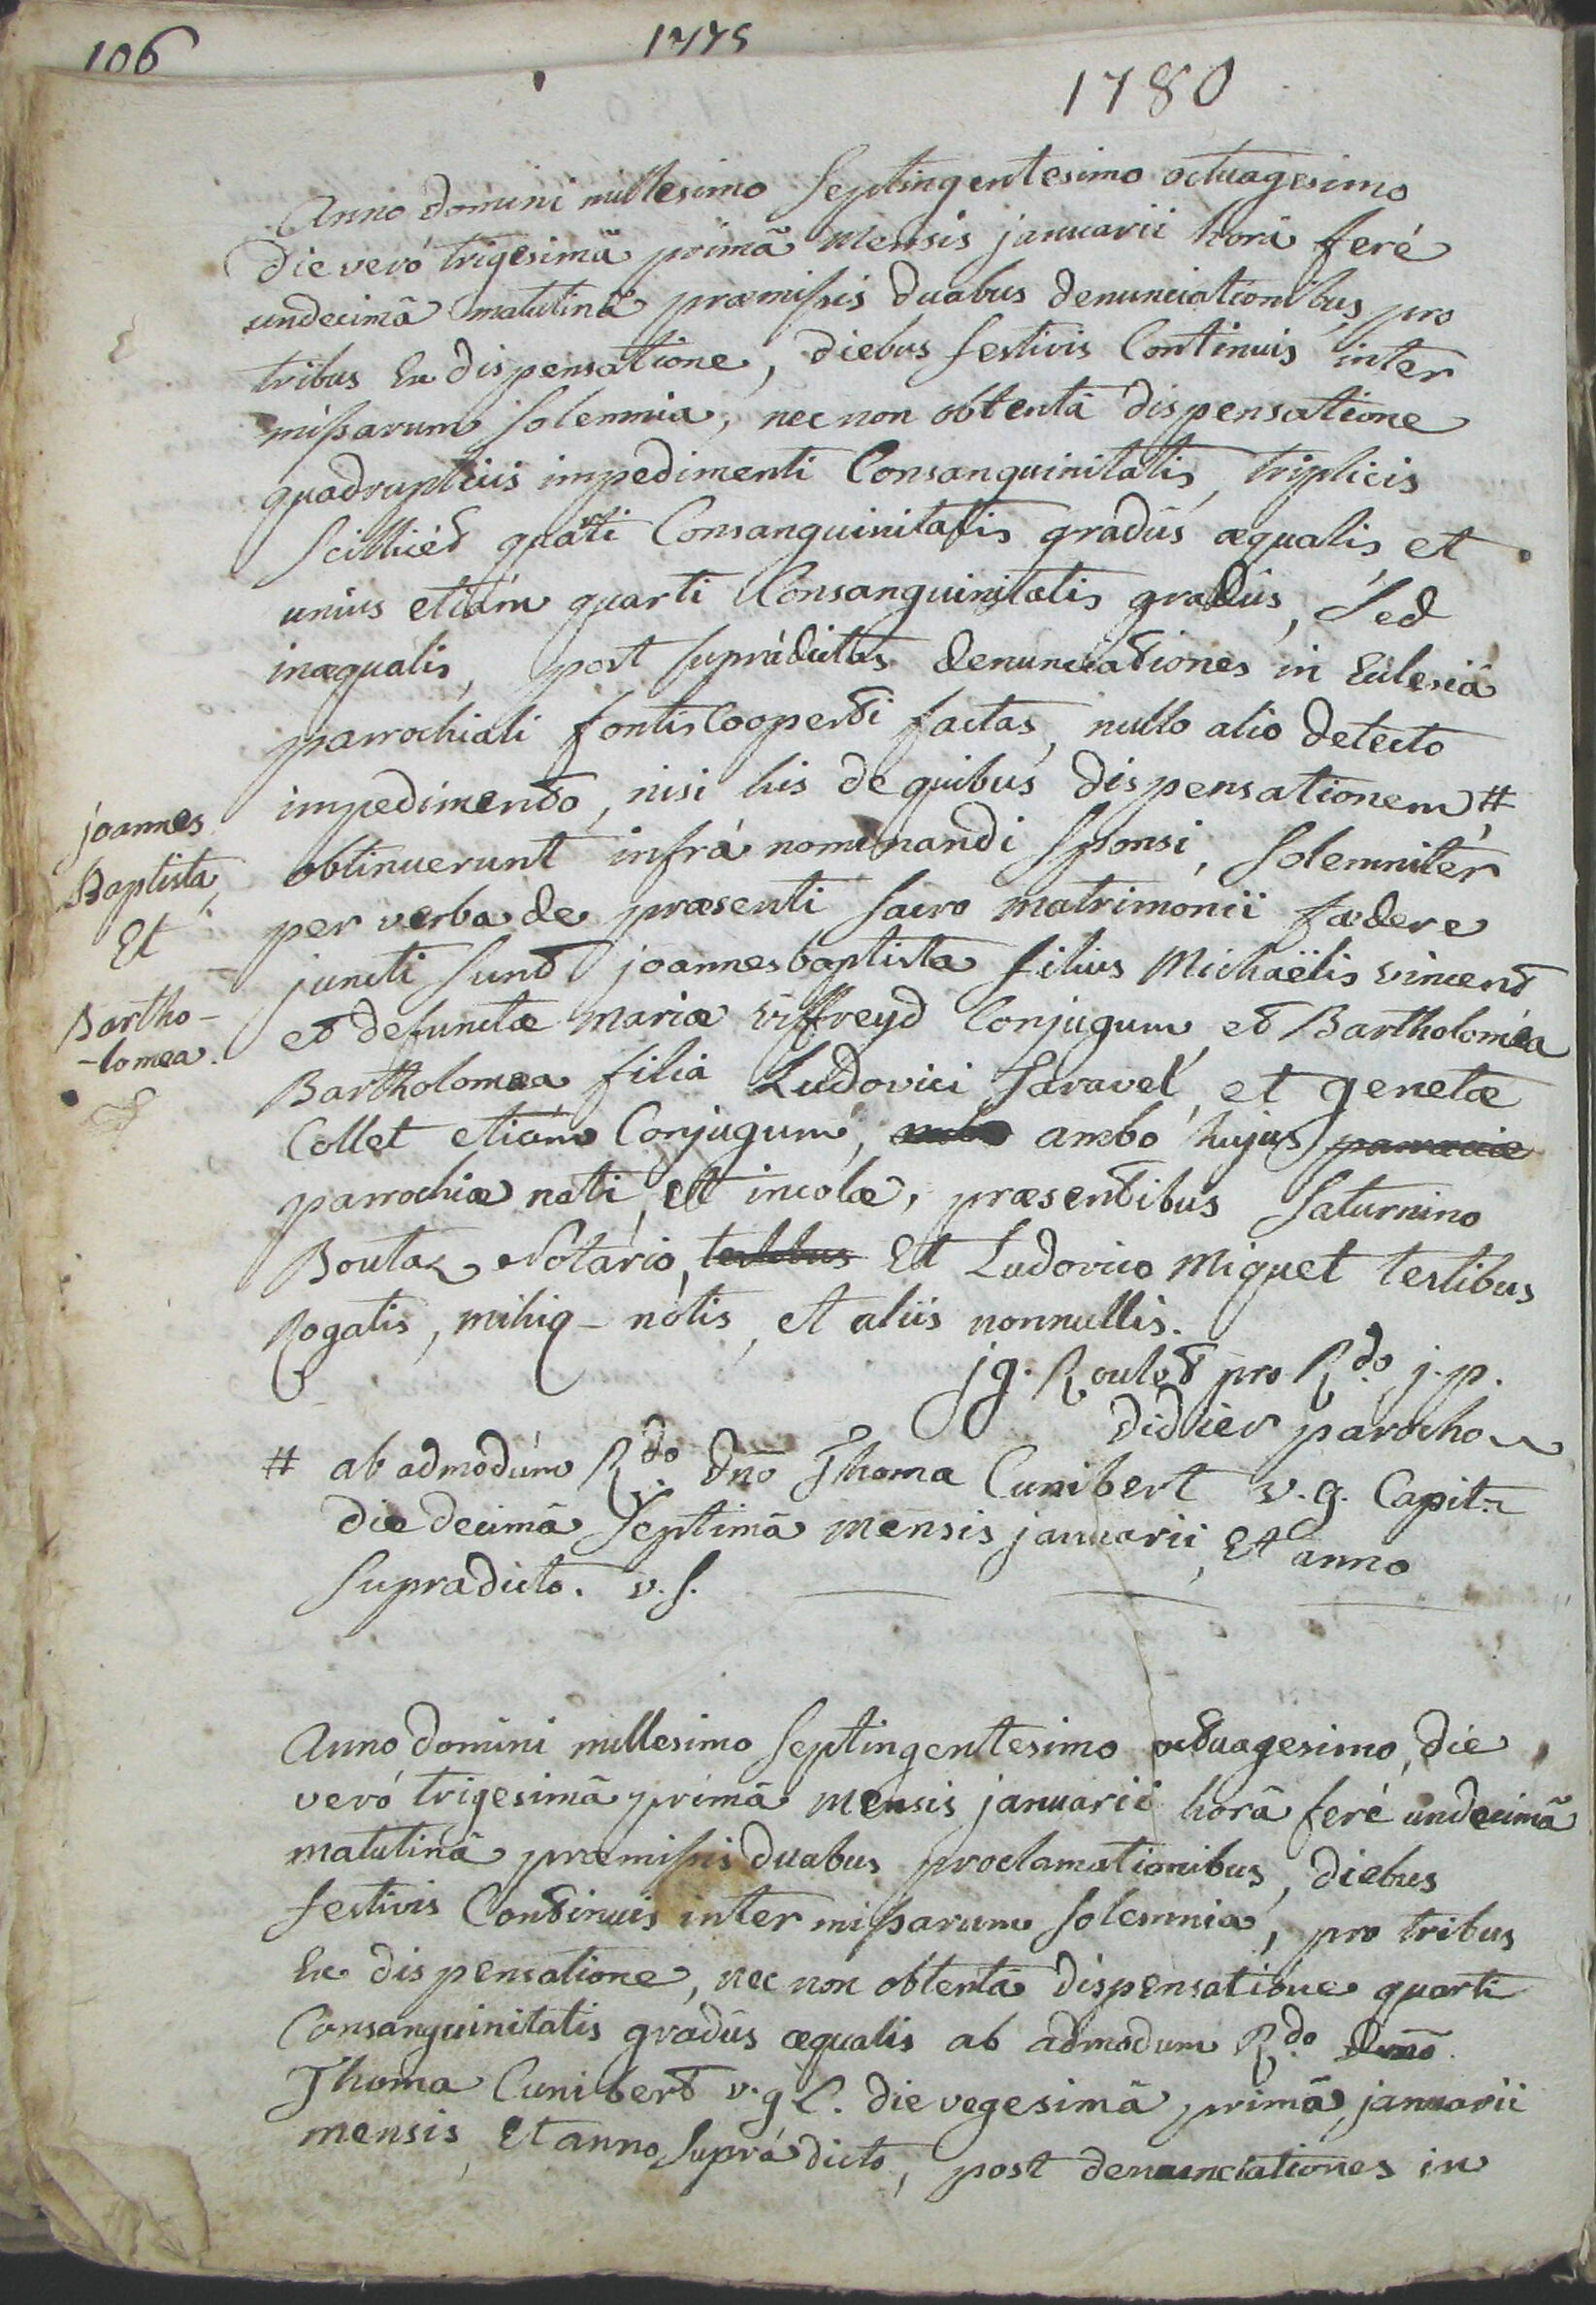 106
1775
1780
Anno domini millesimo septingentesimo octuagesimo
die veró trigesimâ primâ mensis januarii horâ feré
undecimâ matutinâ præmissis duabus denunciationibus pro
tribus ex dispensatione, diebus festivis continuis inter
missarum solemnia, nec non obtentâ dispensatione
quadruplicis impedimenti Consanguinitatis, triplicis
scillicét quarti Consanguinitatis gradûs æqualis, et
unius etiám quarti Consanguinitatis gradûs, sed
inæqualis, post suprádictas denunciationes in Eclesiâ
parrochiali fontiscooperti factas, nullo alio detecto
impedimento, nisi his de quibus dispensationem #
obtinuerunt infrá nominandi sponsi, solemnitér
per verba de præsenti sacro matrimonii fædere
juncti sunt joannesbaptista filius Michaëlis vincent
et defunctæ mariæ viffreyd Conjugum et Bartholoméa
Bartholomæa filia Ludovici Saravel, et genetæ
Collet etiám Conjugum, ambo hujus
parrochiæ nati, et incolæ, præsentibus Saturnino
Boutaz Notário, testibus Et Ludovico Miquet testibus
Rogatis, mihiq- nótis, et aliis nonnullis.
jg. Roulet pro Rdo. j. p.
didier parocho
joannes
Baptista,
Et
Bartho-
-lomea.
# ab admodúm Rdo. dno Thoma Cunibert v. g. Capit.
die decimâ septimâ mensis januarii, Et anno
supradicto. v. s.
Anno domini millesimo septingentesimo octuagesimo, die
veró trigesimâ primâ mensis januarii horâ feré undecimâ
matutinâ præmissis duabus proclamationibus, diebus
festivis Continuis inter missarum solemnia, pro tribus
Ex dispensatione, nec non obtentâ dispensatione quarti
Consanguinitatis gradûs æqualis ab admodum Rdo. Dno.
Thoma Cunibert v. g C. die vegesimâ primâ januarii
mensis, Et anno suprádicto, post denunciationes in